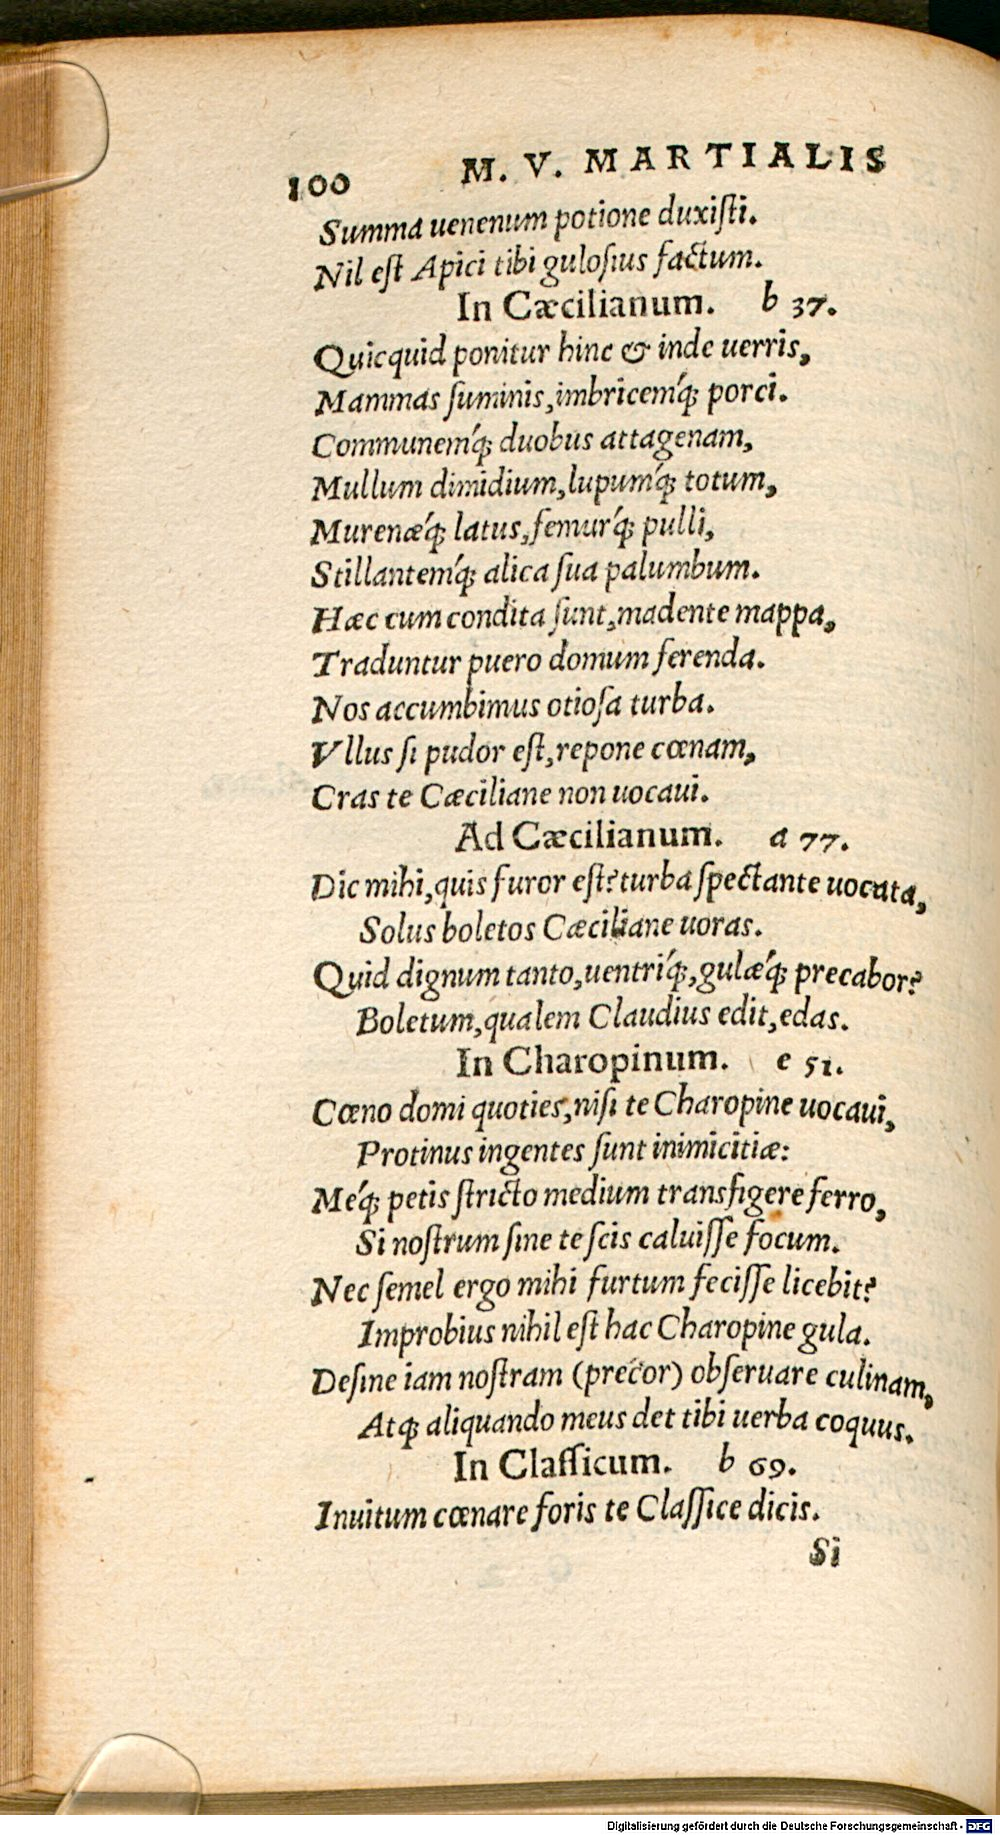 100 M. V. MARTIALIS
Summa uenenum potione duxiſti.
Nil eſt Apici tibi guloſius factum.
In Cæcilianum. b 37.
Quicquid ponitur hinc & inde uerris,
Mammas ſuminis, imbricemq́; porci.
Communemq́; duobus attagenam,
Mullum dimidium, lupumq́; totum,
Murenæq́; latus, femurq́; pulli,
Stillantemq́; alica ſua palumbum.
Hæc cum condita ſunt, madente mappa,
Traduntur puero domum ferenda.
Nos accumbimus otioſa turba.
Vllus ſi pudor eſt, repone cœnam,
Cras te Cæciliane non uocaui.
Ad Cæcilianum. a 77.
Dic mihi, quis furor eſt? turba ſpectante uocata,
Solus boletos Cæciliane uoras.
Quid dignum tanto, uentriq́;, gulæq́; precabor?
Boletum, qualem Claudius edit, edas.
In Charopinum. e 51.
Cœno domi quoties, niſi te Charopine uocaui,
Protinus ingentes ſunt inimicitiæ:
Meq́; petis ſtricto medium transfigere ferro,
Si noſtrum ſine te ſcis caluiſſe focum.
Nec ſemel ergo mihi furtum feciſſe licebit?
Improbius nihil eſt hac Charopine gula.
Deſine iam noſtram (precor) obſeruare culinam,
Atq; aliquando meus det tibi uerba coquus.
In Claſſicum. b 69.
Inuitum cœnare foris te Claſſice dicis.
Si
Digitalisierung gefördert durch die Deutsche Forschungsgemeinschaft - DFG